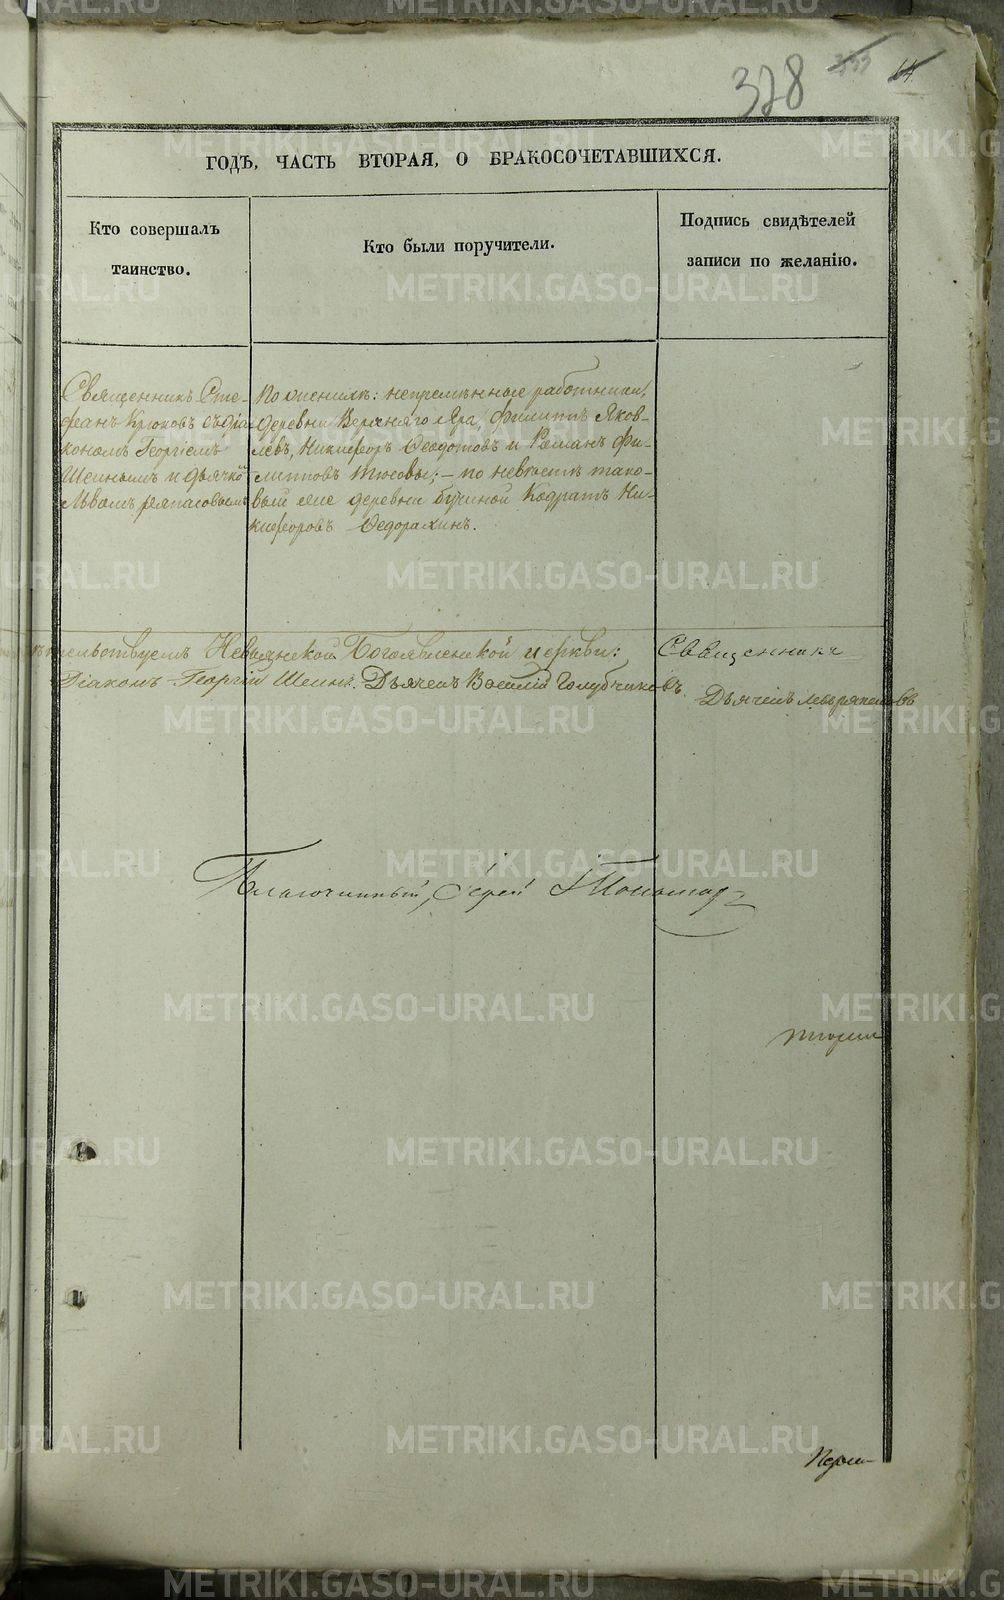 328 333 64.
ГОДѢ, ЧАСТЬ ВТОРАЯ, О БРАКОСОЧЕТАВШИХСЯ.
Кто совершалъ
таинство.
Кто были поручители.
Подпись свидѣтелей
записи по желанію.
Священникъ Сте-
фанъ Крюковъ съ діа-
кономъ Георгіемъ
Шеинымъ и дьячко
Львомъ
По женихѣ: непремѣнные работники,
деревни Верхняго Яра, Филиппъ Яков-
левъ, Никифоръ Ѳеодотовъ и Романъ Фи-
липповъ Тюсовы; – по невѣстѣ тако-
вый же деревни Бучиной Кодратъ Ни-
кифоровъ Ѳедорахинъ.
Невьянской Богоявленской церкви:
Діаконъ Георгій Шеинъ. Дьячекъ Василій Голубчиковъ
Священникъ
Дьячекъ
Благочинный, Іерей
Перм-
METRIKI.GASO-URAL.RU